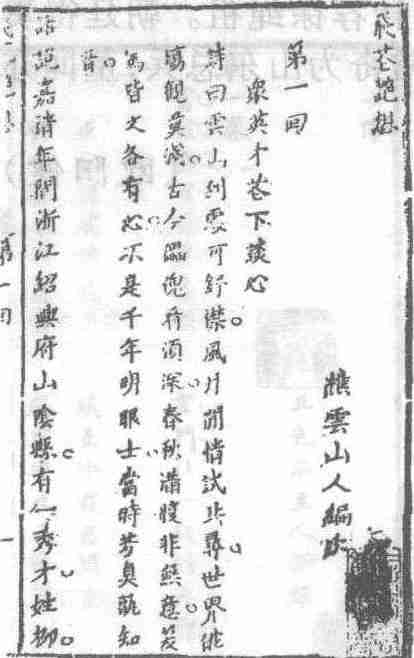 飛花艷想
第一回
眾英才花下談心
樵雲山人編次
詩曰雲山到處可舒襟。風月閒情試共尋。世界俳
塲觀莫淺。古今儡傀看須深。春秋滿腹非無意。笑
罵皆文各有心。不是千年明眼士。當時芳臭孰知
音。
話說嘉靖年間浙江紹興府山陰縣。有一秀才。姓柳。
第一回